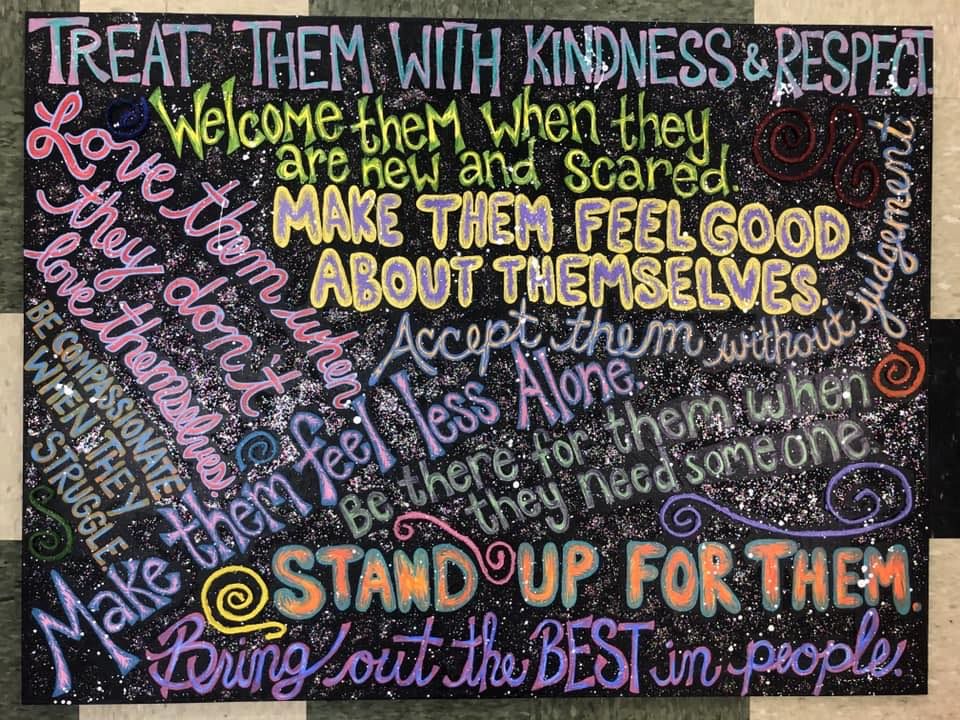 TREAT THEM WITH KINDNESS & RESPECT.
Welcome them when they
are new and scared.
MAKE THEM FEEL GOOD
ABOUT THEMSELVES.
Love them when
they don't
love themselves.
Accept them without judgement.
BE COMPASSIONATE
WHEN THEY
STRUGGLE.
Make them feel less Alone.
Be there for them when
they need someone.
STAND UP FOR THEM.
Bring out the BEST in people.